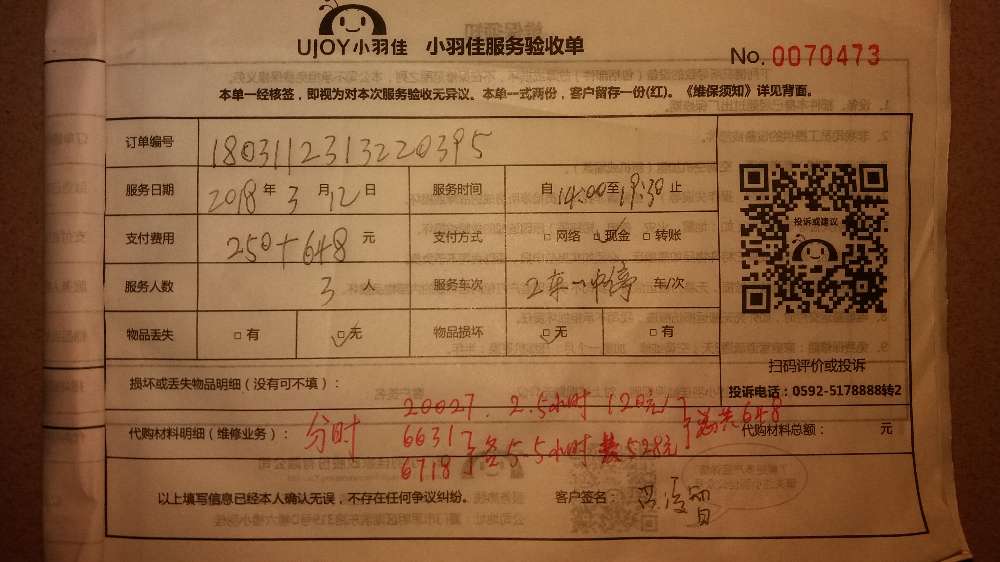 UJOY小羽佳 小羽佳服务验收单
No. 0070473
本单一经核签，即视为对本次服务验收无异议。本单一式两份，客户留存一份(红)。《维保须知》详见背面。
订单编号 1803112313220395
服务日期 2018 年 3 月 12 日 服务时间 自 14:00 至 19:30 止
支付费用 250+648 元 支付方式 □ 网络 □ 现金 □ 转账
投诉或建议
服务人数 3 人 服务车次 2车一中停 车/次
物品丢失 □ 有 □ 无 物品损坏 □ 无 □ 有
扫码评价或投诉
损坏或丢失物品明细（没有可不填）：
投诉电话：0592-5178888转2
20027. 2.5小时 120元
代购材料明细（维修业务）： 分时 6631 各5.5小时 528元 共648
代购材料总额： 元
6718
以上填写信息已经本人确认无误，不存在任何争议纠纷。 客户签名：